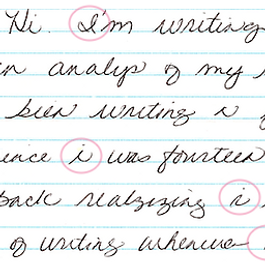 Hi. I'm writing
an analyp of my
been writing in
ence i was fourteen
back realizizing i
of writing whenever